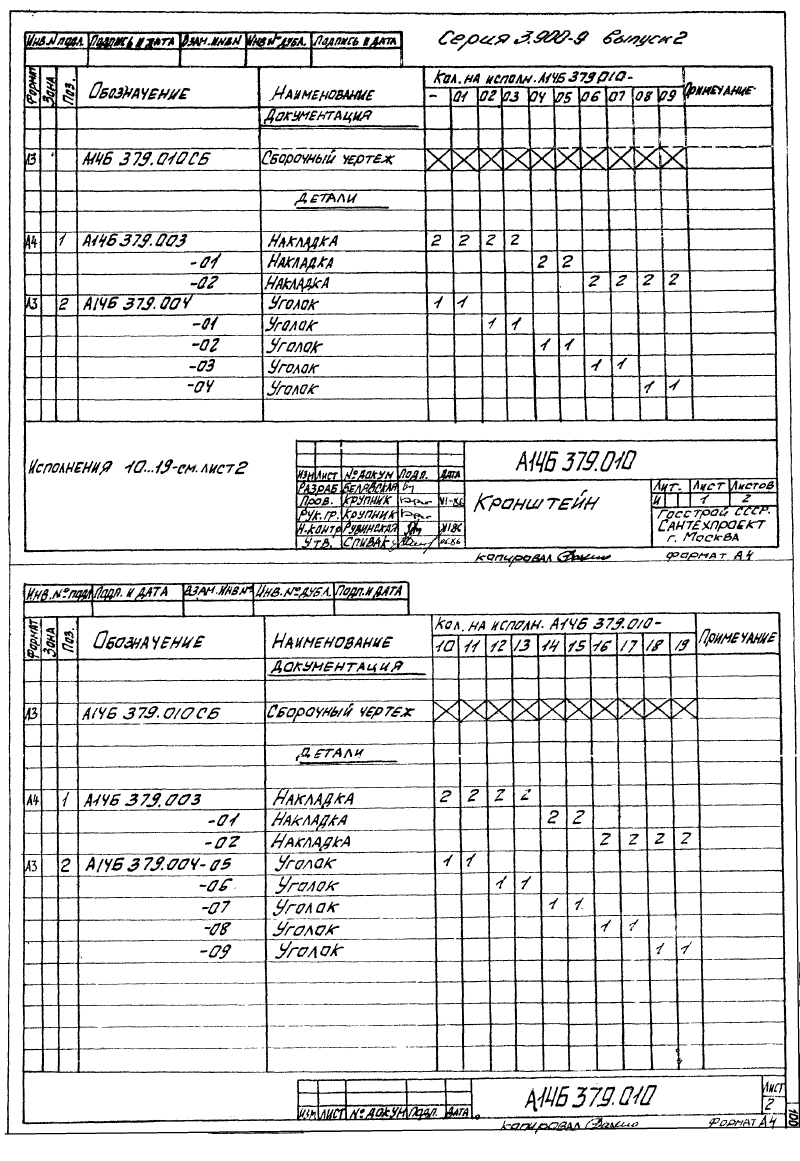 Серия 3.900-9 выпуск 2
Инв.№подл. Подпись и дата Взам.инв№ Инв№дубл. Подпись и дата
Формат Зона Поз. Обозначение Наименование Кол. на исполн. А14Б 379.010- Примечание
- 01 02 03 04 05 06 07 08 09
Документация
А3 А14Б 379.010СБ Сборочный чертеж
Детали
А4 1 А14Б 379.003 Накладка 2 2 2 2
-01 Накладка 2 2
-02 Накладка 2 2 2 2
А3 2 А14Б 379.004 Уголок 1 1
-01 Уголок 1 1
-02 Уголок 1 1
-03 Уголок 1 1
-04 Уголок 1 1
Исполнения 10...19-см.лист 2
А14Б 379.010
Изм Лист №докум Подп. Дата
Разраб Белявская
Пров. Крупник VI-86
Рук.гр. Крупник
Н.контр Рубинская VI86
Утв. Спивак
Кронштейн
Лит. Лист Листов
И 1 2
Госстрой СССР.
Сантехпроект
г. Москва
Копировал Формат А4
Инв.№подл Подп. и дата Взам.инв№ Инв.№дубл. Подп.и дата
Формат Зона Поз. Обозначение Наименование Кол. на исполн. А14Б 379.010- Примечание
10 11 12 13 14 15 16 17 18 19
Документация
А3 А14Б 379.010СБ Сборочный чертеж
Детали
А4 1 А14Б 379.003 Накладка 2 2 2 2
-01 Накладка 2 2
-02 Накладка 2 2 2 2
А3 2 А14Б 379.004-05 Уголок 1 1
-06 Уголок 1 1
-07 Уголок 1 1
-08 Уголок 1 1
-09 Уголок 1 1
А14Б 379.010
Лист
2
Изм Лист №докум Подп. Дата
Копировал Формат А4
100